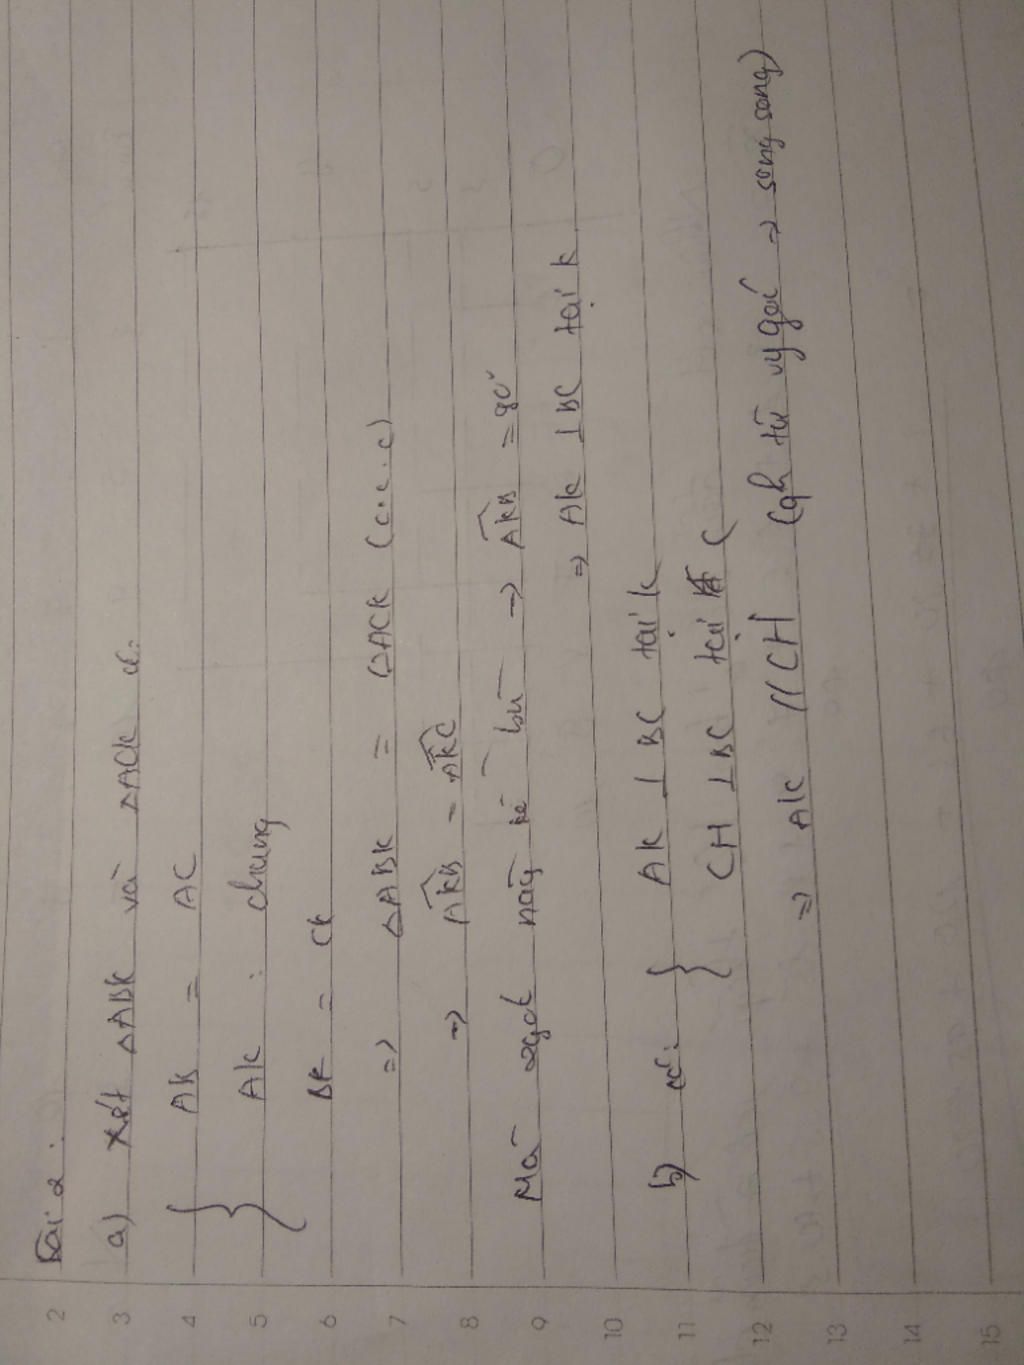 Bài 2:
a) Xét ΔABK và ΔACK có:
AB = AC
AK : chung
BK = CK
=> ΔABK = ΔACK (c.c.c)
=> AKB = AKC
Mà 2 góc này kề bù => AKB = 90°
=> AK ⊥ BC tại K
b) có: AK ⊥ BC tại K
CH ⊥ BC tại C
=> AK // CH (qh từ vg góc => song song)
2
3
4
5
6
7
8
9
10
11
12
13
14
15